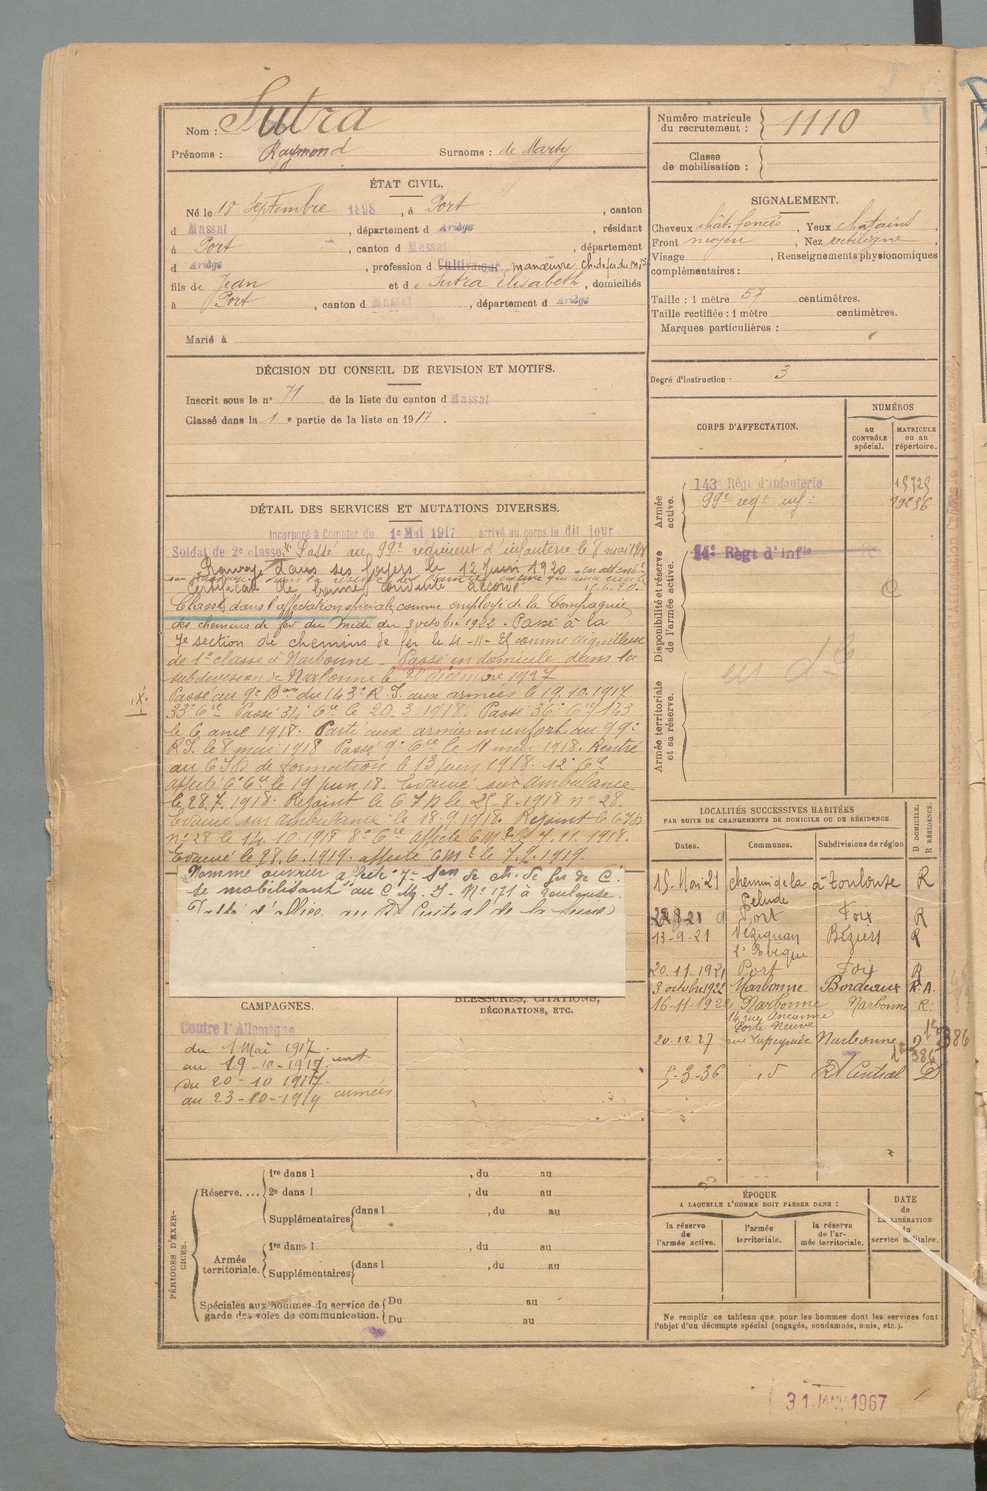 Nom : Sutra
Prénoms : Raymond Surnoms : de Marty
Numéro matricule du recrutement : 1110
Classe de mobilisation :
ÉTAT CIVIL.
Né le 18 Septembre 1898, à Port, canton
d Massat, département d Ariège, résidant
à Port, canton d Massat, département
d Ariège, profession d Cultivateur, manœuvre Ch. de fer du Midi
fils de Jean et de Sutra Elisabeth, domiciliés
à Port, canton d Massat, département d Ariège
Marié à
SIGNALEMENT.
Cheveux chât. foncés, Yeux chatains,
Front moyen, Nez rectiligne,
Visage , Renseignements physionomiques
complémentaires :
Taille : 1 mètre 57 centimètres.
Taille rectifiée : 1 mètre centimètres.
Marques particulières :
Degré d'instruction : 3
DÉCISION DU CONSEIL DE REVISION ET MOTIFS.
Inscrit sous le n° 71 de la liste du canton d Massat
Classé dans la 1 e partie de la liste en 1917.
CORPS D'AFFECTATION.
NUMÉROS
AU CONTRÔLE spécial.
MATRICULE ou au répertoire.
Armée active.
143e Régt d'infanterie 15725
99e regt inf
Disponibilité et réserve de l'armée active.
14e Régt d'Infie
Armée territoriale et sa réserve.
DÉTAIL DES SERVICES ET MUTATIONS DIVERSES.
Incorporé à Compter du 1er Mai 1917 arrivé au corps le dit jour
Soldat de 2e classe. Passé au 99e régiment d'infanterie le 8 mai 1918
Renvoyé dans ses foyers le 12 Juin 1920
Certificat de bonne conduite accordé
Classé dans l'affectation spéciale comme employé de la Compagnie
des chemins de fer du Midi du 3 octobre 1922. Passé à la
7e section de chemins de fer le 4-11- comme aiguilleur
de 1e classe à Narbonne. Passé en domicile dans la
subdivision de Narbonne le 20 décembre 1927
Passé au 9e Bon du 143e R.I. aux armées le 19.10.1917
33e Cie Passé 34e Cie le 20.3.1918. Passé 36e Cie 173
le 6 avril 1918. Parti aux armées en renfort au 99e
R.I. le 8 mai 1918 Passé 9e Cie le 11 mai 1918. Rentré
au C.I.D de formation le 13 juin 1918. 12e Cie
affecté 6e Cie le 19 juin 18. Evacué sur ambulance
le 28.7.1918. Rejoint le C.I.D le 25.8.1918 n° 28.
Evacué sur ambulance le 18.9.1918. Rejoint le C.I.D
n° 28 le 14.10.1918 8e Cie affecté C.M.2 le 7.11.1918.
Evacué le 28.6.1919. affecté C.M.2 le 7.7.1919.
Nommé ouvrier affecté 7e Son de ch. de fer de C.
se mobilisant au C.M.I. N° 171 à Toulouse
au Rt Central de la Seine
LOCALITÉS SUCCESSIVES HABITÉES
PAR SUITE DE CHANGEMENTS DE DOMICILE OU DE RÉSIDENCE
Dates. Communes. Subdivisions de région D DOMICILE. R RÉSIDENCE.
15-Mai 21 chemin de la à Toulouse R
21 Port Foix R
13-9-21 Lézignan l'Evêque Béziers R
20-11-1921 Port Foix R
3 octobre 1922 Narbonne Bordeaux R.A.
16-11-1922 Narbonne Narbonne R.
14 rue Ancienne Porte Neuve
20.12.27 rue Lapeyrade Narbonne D
5-3-36 id Rt Central D
CAMPAGNES.
Contre l'Allemagne
du 1 Mai 1917
au 19-10-1917 int
du 20-10 1917
au 23-10-1919 armées
BLESSURES, CITATIONS, DÉCORATIONS, ETC.
PÉRIODES D'EXERCICES.
Réserve.... 1re dans l , du au
2e dans l , du au
Supplémentaires dans l , du au
Armée territoriale. 1re dans l , du au
Supplémentaires dans l , du au
Spéciales aux hommes du service de garde des voies de communication. Du au
Du au
ÉPOQUE
A LAQUELLE L'HOMME DOIT PASSER DANS :
la réserve de l'armée active.
l'armée territoriale.
la réserve de l'armée territoriale.
DATE de LA LIBÉRATION du service militaire.
Ne remplir ce tableau que pour les hommes dont les services font
l'objet d'un décompte spécial (engagés, condamnés, omis, etc.).
31 JANV 1967